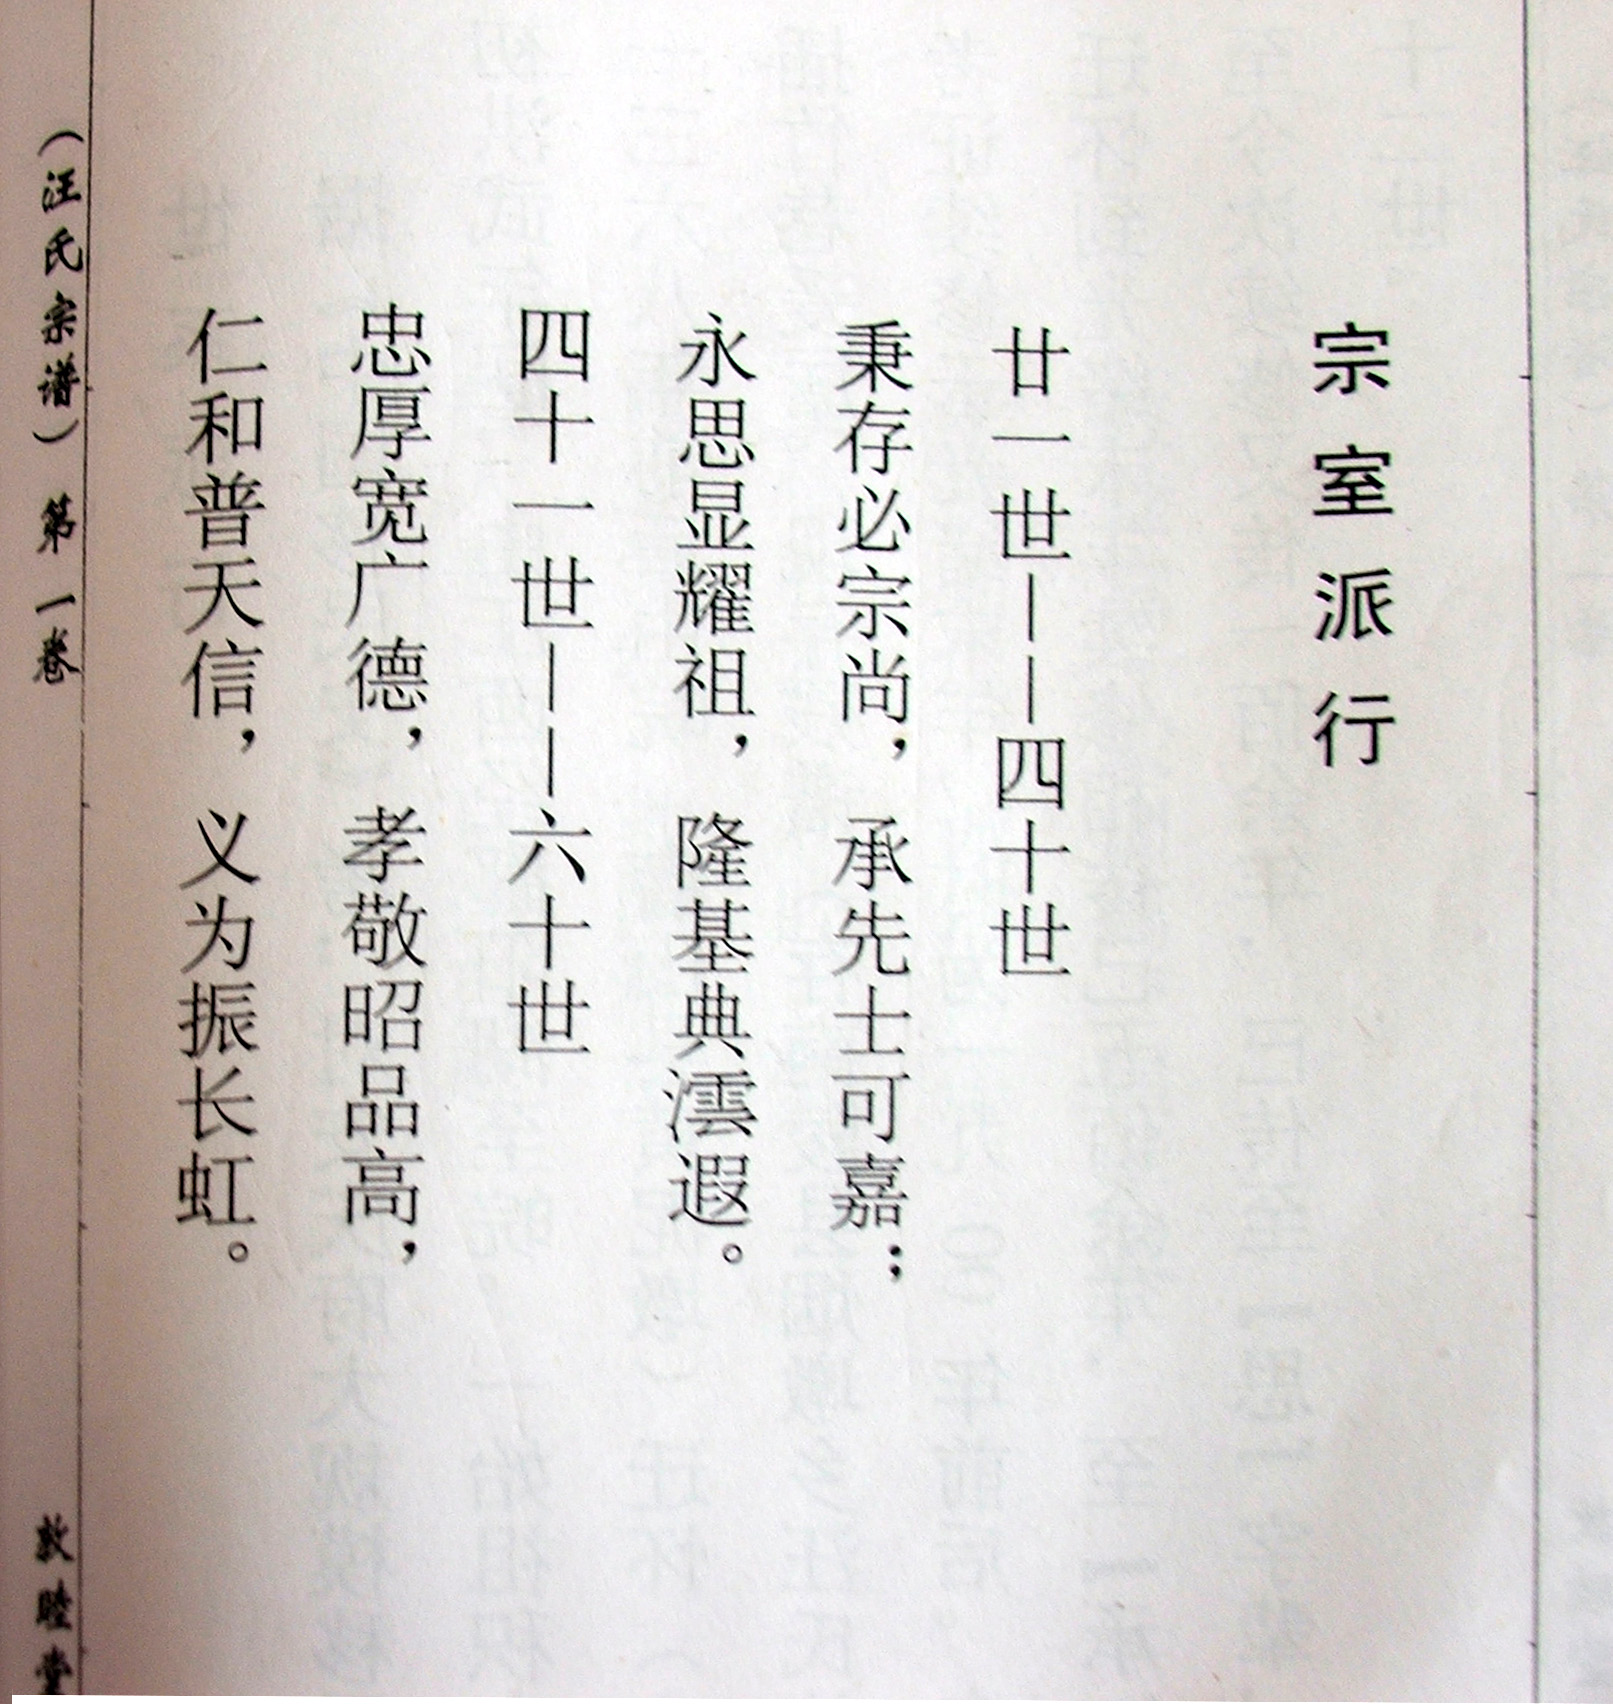 宗室派行
廿一世——四十世
秉存必宗尚，承先士可嘉；
永思显耀祖，隆基典澐遐。
四十一世——六十世
忠厚宽广德，孝敬昭品高，
仁和普天信，义为振长虹。
（汪氏宗谱）第一卷 敦睦堂